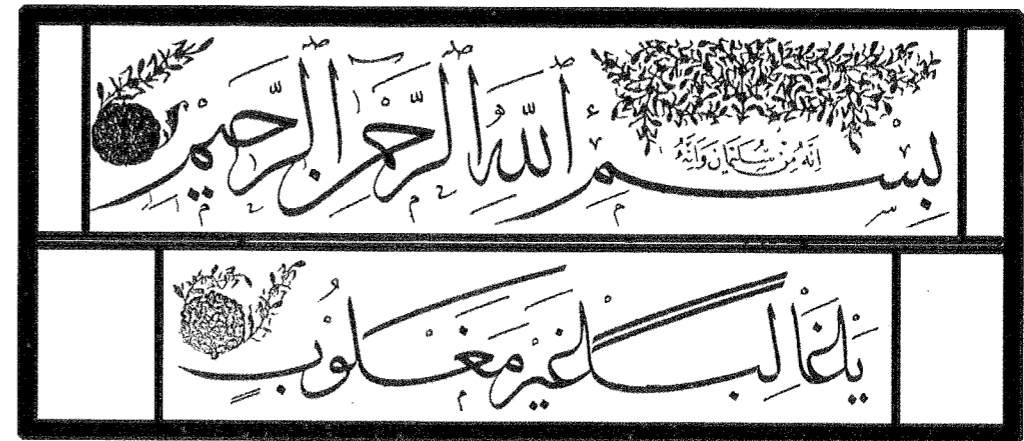 اِنَّهُ مِنْ سُلَيْمَانَ وَاِنَّهُ
بِسْمِ اللّٰهِ الرَّحْمٰنِ الرَّحِيمِ
يَا غَالِبًا غَيْرَ مَغْلُوبٍ